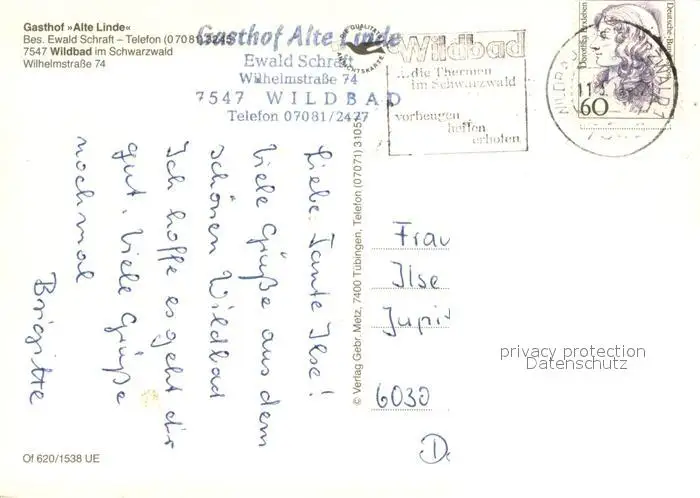 Gasthof »Alte Linde«
Bes. Ewald Schraft – Telefon (07081)
7547 Wildbad im Schwarzwald
Wilhelmstraße 74
Gasthof Alte Linde
Ewald Schraft
Wilhelmstraße 74
7547 WILDBAD
Telefon 07081/2427
Wildbad
...die Thermen
im Schwarzwald
vorbeugen
helfen
erholen
Dorothea Erxleben
Deutsche Bundespost
60
Liebe Tante Ilse!
Viele Grüße aus dem
schönen Wildbad
Ich hoffe es geht dir
gut. Viele Grüße
nochmal
Brigitte
© Verlag Gebr. Metz, 7400 Tübingen, Telefon (07071) 3105
Frau
Ilse
Jupit
6030
privacy protection
Datenschutz
Of 620/1538 UE